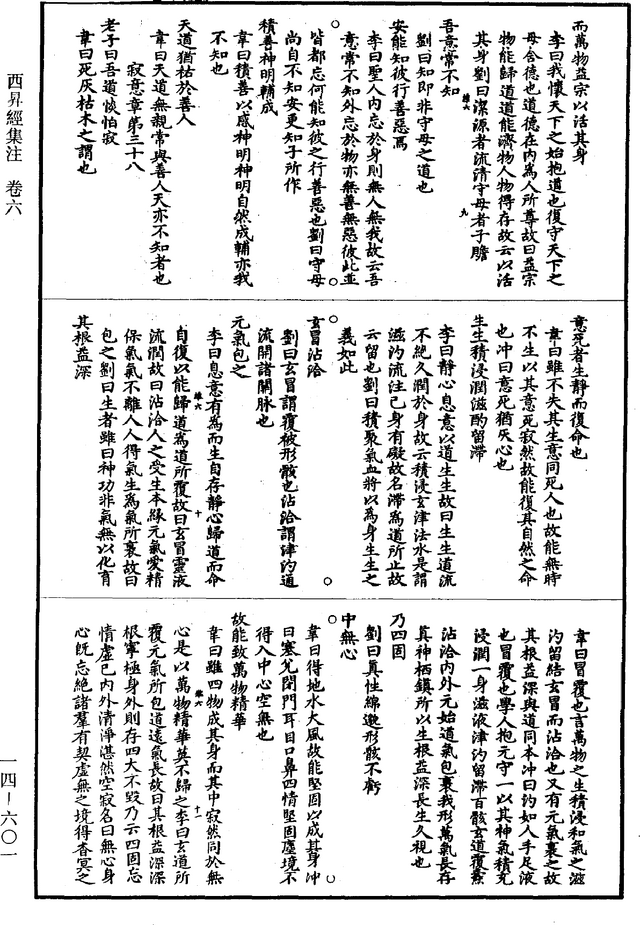 西昇經集注　卷六
一四－六〇一
而萬物益宗以活其身
李曰我懷天下之始抱道也復守天下之
母含德也道德在內為人所尊故曰益宗
物能歸道道能濟物人物得存故云以活
其身劉曰潔源者流清守母者子贍
吾意常不知
劉曰知即非守母之道也
安能知彼行善惡焉
李曰聖人內忘於身則無人無我故云吾
意常不知外忘於物亦無善無惡彼此並
皆都忘何能知彼之行善惡也劉曰守母
尚自不知安更知子所作
積善神明輔成
韋曰積善以感神明神明自然成輔亦我
不知也
天道猶祐於善人
韋曰天道無親常與善人天亦不知者也
寂意章第三十八
老子曰吾道恢怕寂
韋曰死灰枯木之謂也
意死者生靜而復命也
韋曰雖不失其生意同死人也故能無時
不生以其意死寂然故能復其自然之命
也沖曰意死猶灰心也
生生積浸潤滋酌留滯
李曰靜心息意以道生生故曰生生道流
不絕久潤於身故云積浸玄津法水是謂
滋汋流注己身有礙故名滯為道所止故
云留也劉曰積聚氣血將以為身生生之
義如此
玄冒沾洽
劉曰玄冒謂覆被形骸也沾洽謂津汋通
流開諸關脉也
元氣包之
李曰息意有為而生自存靜心歸道而命
自復以能歸道為道所覆故曰玄冒靈液
流潤故曰沾洽人之受生本緣元氣愛精
保氣氣不離人人得氣生為氣所裹故曰
包之劉曰生者雖曰神功非氣無以化育
其根益深
韋曰冒覆也言萬物之生積浸和氣之滋
汋留結玄冒而沾洽也又有元氣裹之故
其根益深與道同本沖曰汋如人手足液
也冒覆也學人抱元守一以其神氣積充
浸潤一身滋液津汋留滯百骸玄道覆蓋
沾洽內外元始道氣包裹我形萬氣長存
真神栖鎮所以生根益深長生久視也
乃四固
劉曰真性綿邈形骸不虧
中無心
韋曰得地水大風故能堅固以成其身沖
曰塞兌閉門耳目口鼻四情堅固塵境不
得入中心空無也
故能致萬物精華
韋曰雖四物成其身而其中寂然同於無
心是以萬物精華莫不歸之李曰玄道所
覆元氣所包道遠氣長故曰其根益深深
根寧極身外則存四大不毀乃云四固忘
情虛己內外清淨湛然空寂名曰無心身
心既忘絕諸羣有契虛無之境得杳冥之